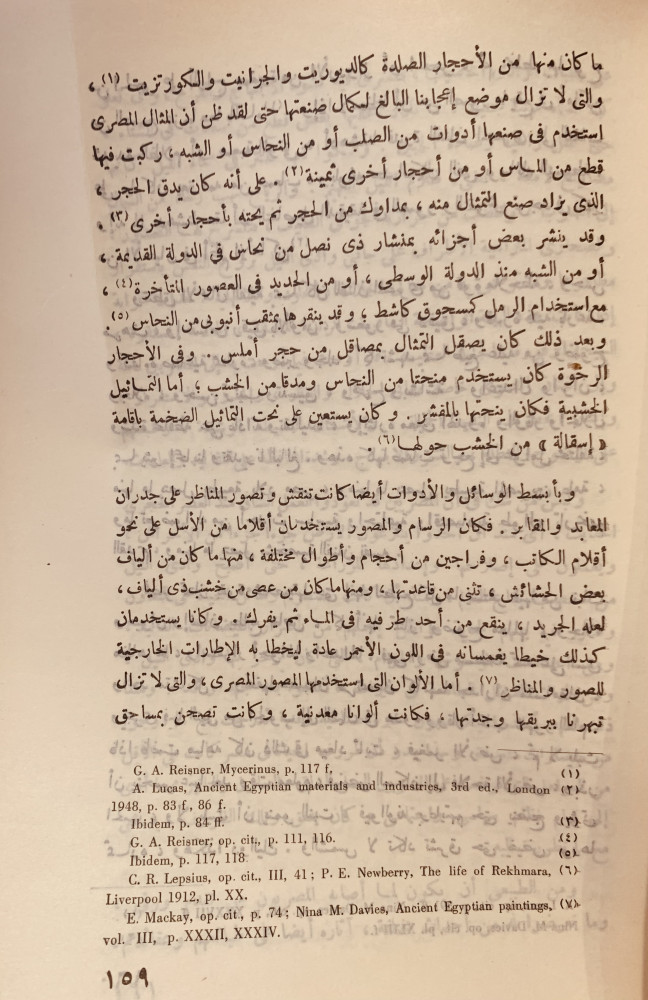 ما كان منها من الأحجار الصلدة كالديوريت والجرانيت والكورتزيت (١) ،
والتى لا تزال موضع إعجابنا البالغ لكمال صنعتها حتى لقد ظن أن المثال المصرى
استخدم فى صنعها أدوات من الصلب أو من النحاس أو الشبه ، ركبت فيها
قطع من الماس أو من أحجار أخرى ثمينة (٢) . على أنه كان يدق الحجر ،
الذى يراد صنع التمثال منه ، بمداوك من الحجر ثم يحته بأحجار أخرى (٣) .
وقد ينشر بعض أجزائه بمنشار ذى نصل من نحاس في الدولة القديمة ،
أو من الشبه منذ الدولة الوسطى ، أو من الحديد فى العصور المتأخرة (٤) ،
مع استخدام الرمل كمسحوق كاشط ؛ وقد ينقرها بمثقب أنبوبى من النحاس (٥) .
وبعد ذلك كان يصقل التمثال بمصاقل من حجر أملس . وفى الأحجار
الرخوة كان يستخدم منحتا من النحاس ومدقا من الخشب ؛ أما التماثيل
الخشبية فكان ينحتها بالمقشر . وكان يستعين على نحت التماثيل الضخمة باقامة
« إسقالة » من الخشب حولها (٦) .
وبأبسط الوسائل والأدوات أيضا كانت تنقش وتصور المناظر على جدران
المعابد والمقابر . فكان الرسام والمصور يستخدمان أقلاما من الأسل على نحو
أقلام الكاتب ، وفراجين من أحجام وأطوال مختلفة ، منها ما كان من ألياف
بعض الحشائش ، تثنى من قاعدتها ، ومنها ما كان من عصى من خشب ذى ألياف ،
لعله الجريد ، ينقع من أحد طرفيه فى الماء ثم يفرك . وكانا يستخدمان
كذلك خيطا يغمسانه فى اللون الأحمر عادة ليخطا به الإطارات الخارجية
للصور والمناظر (٧) . أما الألوان التى استخدمها المصور المصرى ، والتى لا تزال
تبهرنا ببريقها وجدتها ، فكانت ألوانا معدنية ، وكانت تصحن بمساحق
(١) G. A. Reisner, Mycerinus, p. 117 f.
(٢) A. Lucas, Ancient Egyptian materials and industries, 3rd ed., London
1948, p. 83 f., 86 f.
(٣) Ibidem, p. 84 ff.
(٤) G. A. Reisner, op. cit., p. 111, 116.
(٥) Ibidem, p. 117, 118.
(٦) C. R. Lepsius, op. cit., III, 41 ; P. E. Newberry, The life of Rekhmara,
Liverpool 1912, pl. XX.
(٧) E. Mackay, op. cit., p. 74 ; Nina M. Davies, Ancient Egyptian paintings,
vol. III, p. XXXII, XXXIV.
١٥٩